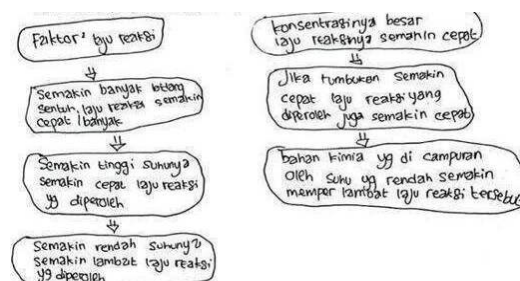 Faktor² laju reaksi
Semakin banyak bidang
sentuh, laju reaksi semakin
cepat / banyak
Semakin tinggi suhunya
semakin cepat laju reaksi
yg diperoleh
Semakin rendah suhunya
semakin lambat laju reaksi
yg diperoleh
konsentrasinya besar
laju reaksinya semakin cepat
Jika tumbukan semakin
cepat laju reaksi yang
diperoleh juga semakin cepat
bahan kimia yg di campuran
oleh suhu yg rendah semakin
memper lambat laju reaksi tersebut